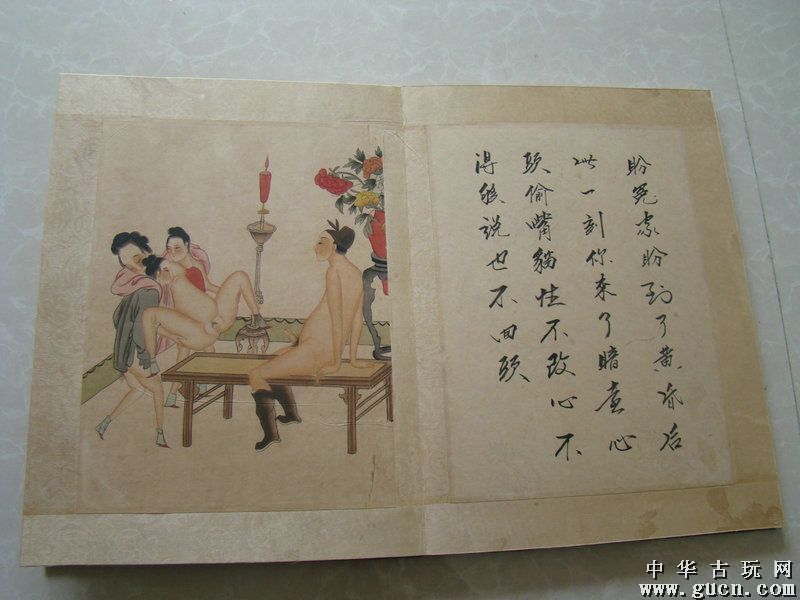 盼冤家盼到了黄昏后
此一刻你来了暗喜心
头偷嘴貓性不改心不
得能说也不回头
中华古玩网
www.gucn.com